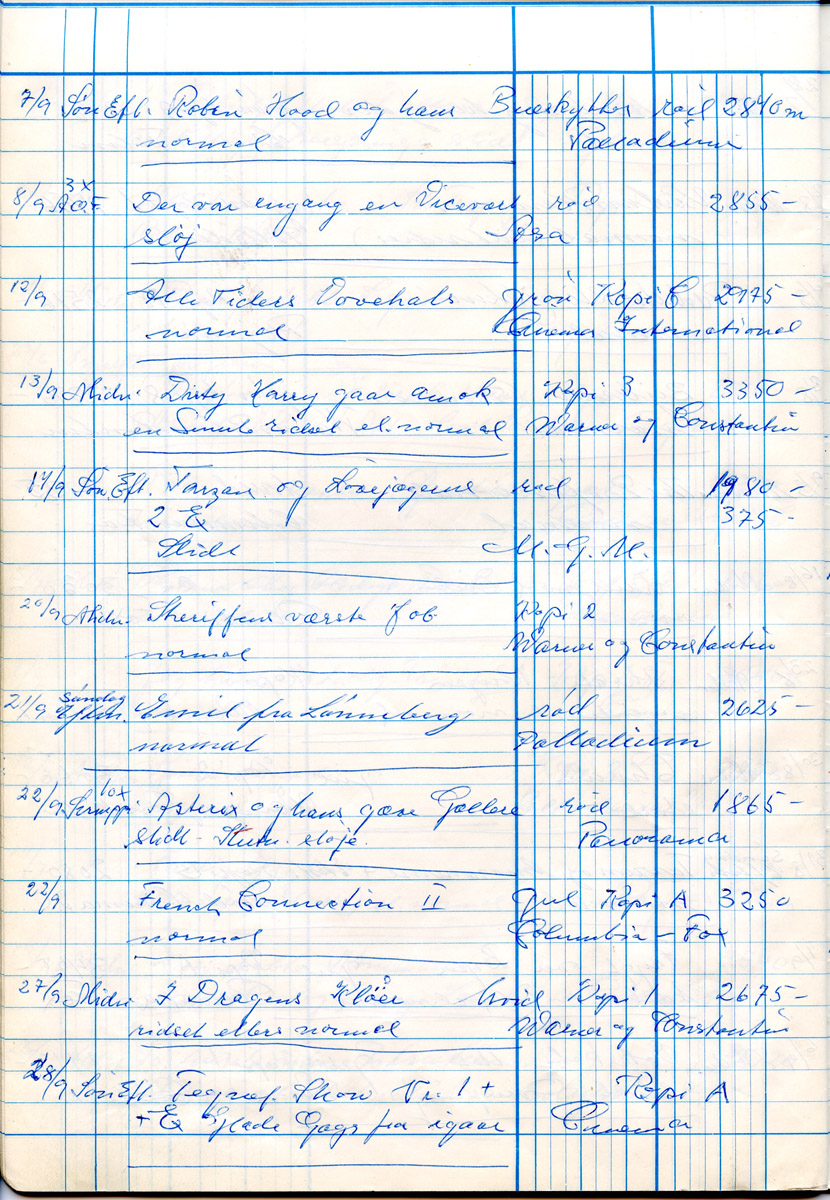 7/9 Søn Eft. Robin Hood og hans Bueskytter rød 2840 m
normal Palladium
3x
8/9 Der var engang en Vicevært rød 2855-
sløj Asa
12/9 Alle Tiders Vovehals grøn Kopi C 2975-
normal Cinema International
13/9 Midn. Dirty Harry gaar amok Kopi 3 3350-
en Smule ridset el. normal Warner og Constantin
14/9 Søn. Eft. Tarzan og Løvejægerne rød 1980-
2 Ex 375-
Slidt M.G.M.
20/9 Midn. Sheriffens værste Job Kopi 2
normal Warner og Constantin
Søndag
21/9 Eftm. Emil fra Lønneberg rød 2625-
normal Palladium
10x
22/9 Asterix og hans gæve Gallere rød 1865-
slidt - sløje. Panorama
22/9 French Connection II gul Kopi A 3250
normal Columbia-Fox
27/9 Midn I Dragens Kløer hvid Kopi 1 2675-
ridset ellers normal Warner og Constantin
28/9 Søn Eft. Tegnef. Show Nr. 1 + Kopi A
+ Ex Glade Gags fra igaar Cinema